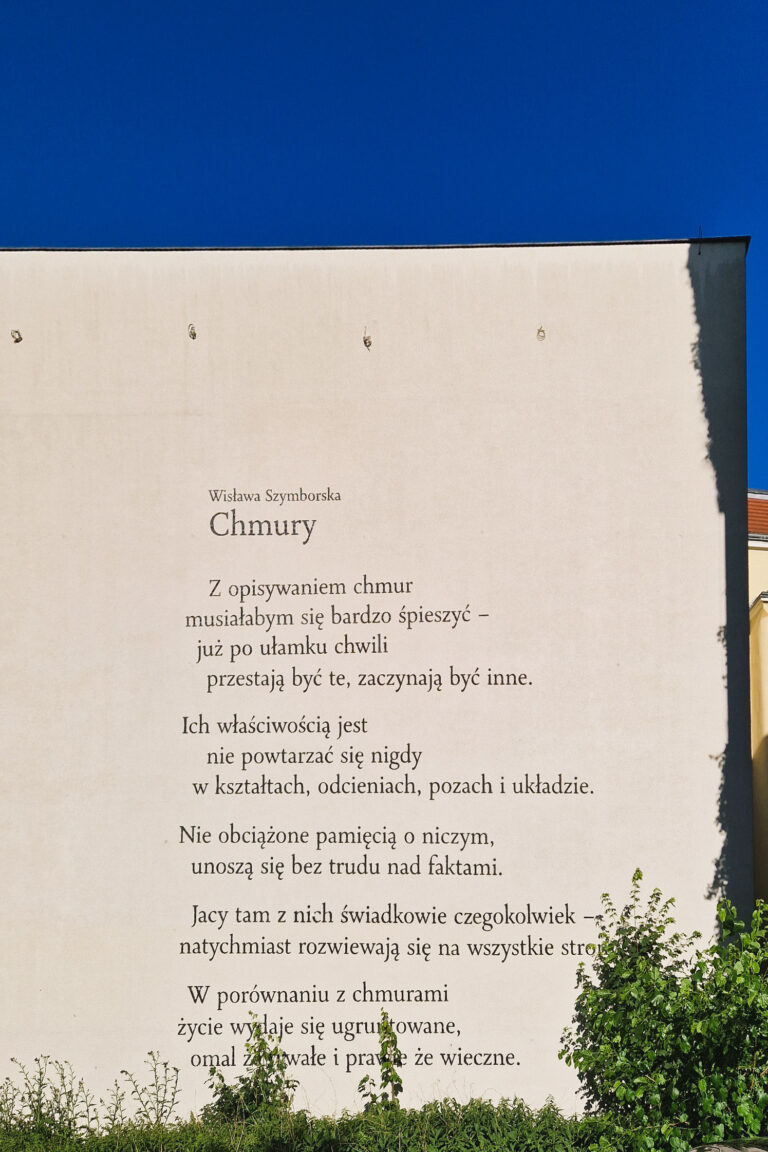 Wisława Szymborska
Chmury
Z opisywaniem chmur
musiałabym się bardzo śpieszyć –
już po ułamku chwili
przestają być te, zaczynają być inne.
Ich właściwością jest
nie powtarzać się nigdy
w kształtach, odcieniach, pozach i układzie.
Nie obciążone pamięcią o niczym,
unoszą się bez trudu nad faktami.
Jacy tam z nich świadkowie czegokolwiek –
natychmiast rozwiewają się na wszystkie
W porównaniu z chmurami
życie wydaje się ugruntowane,
omal i prawie że wieczne.